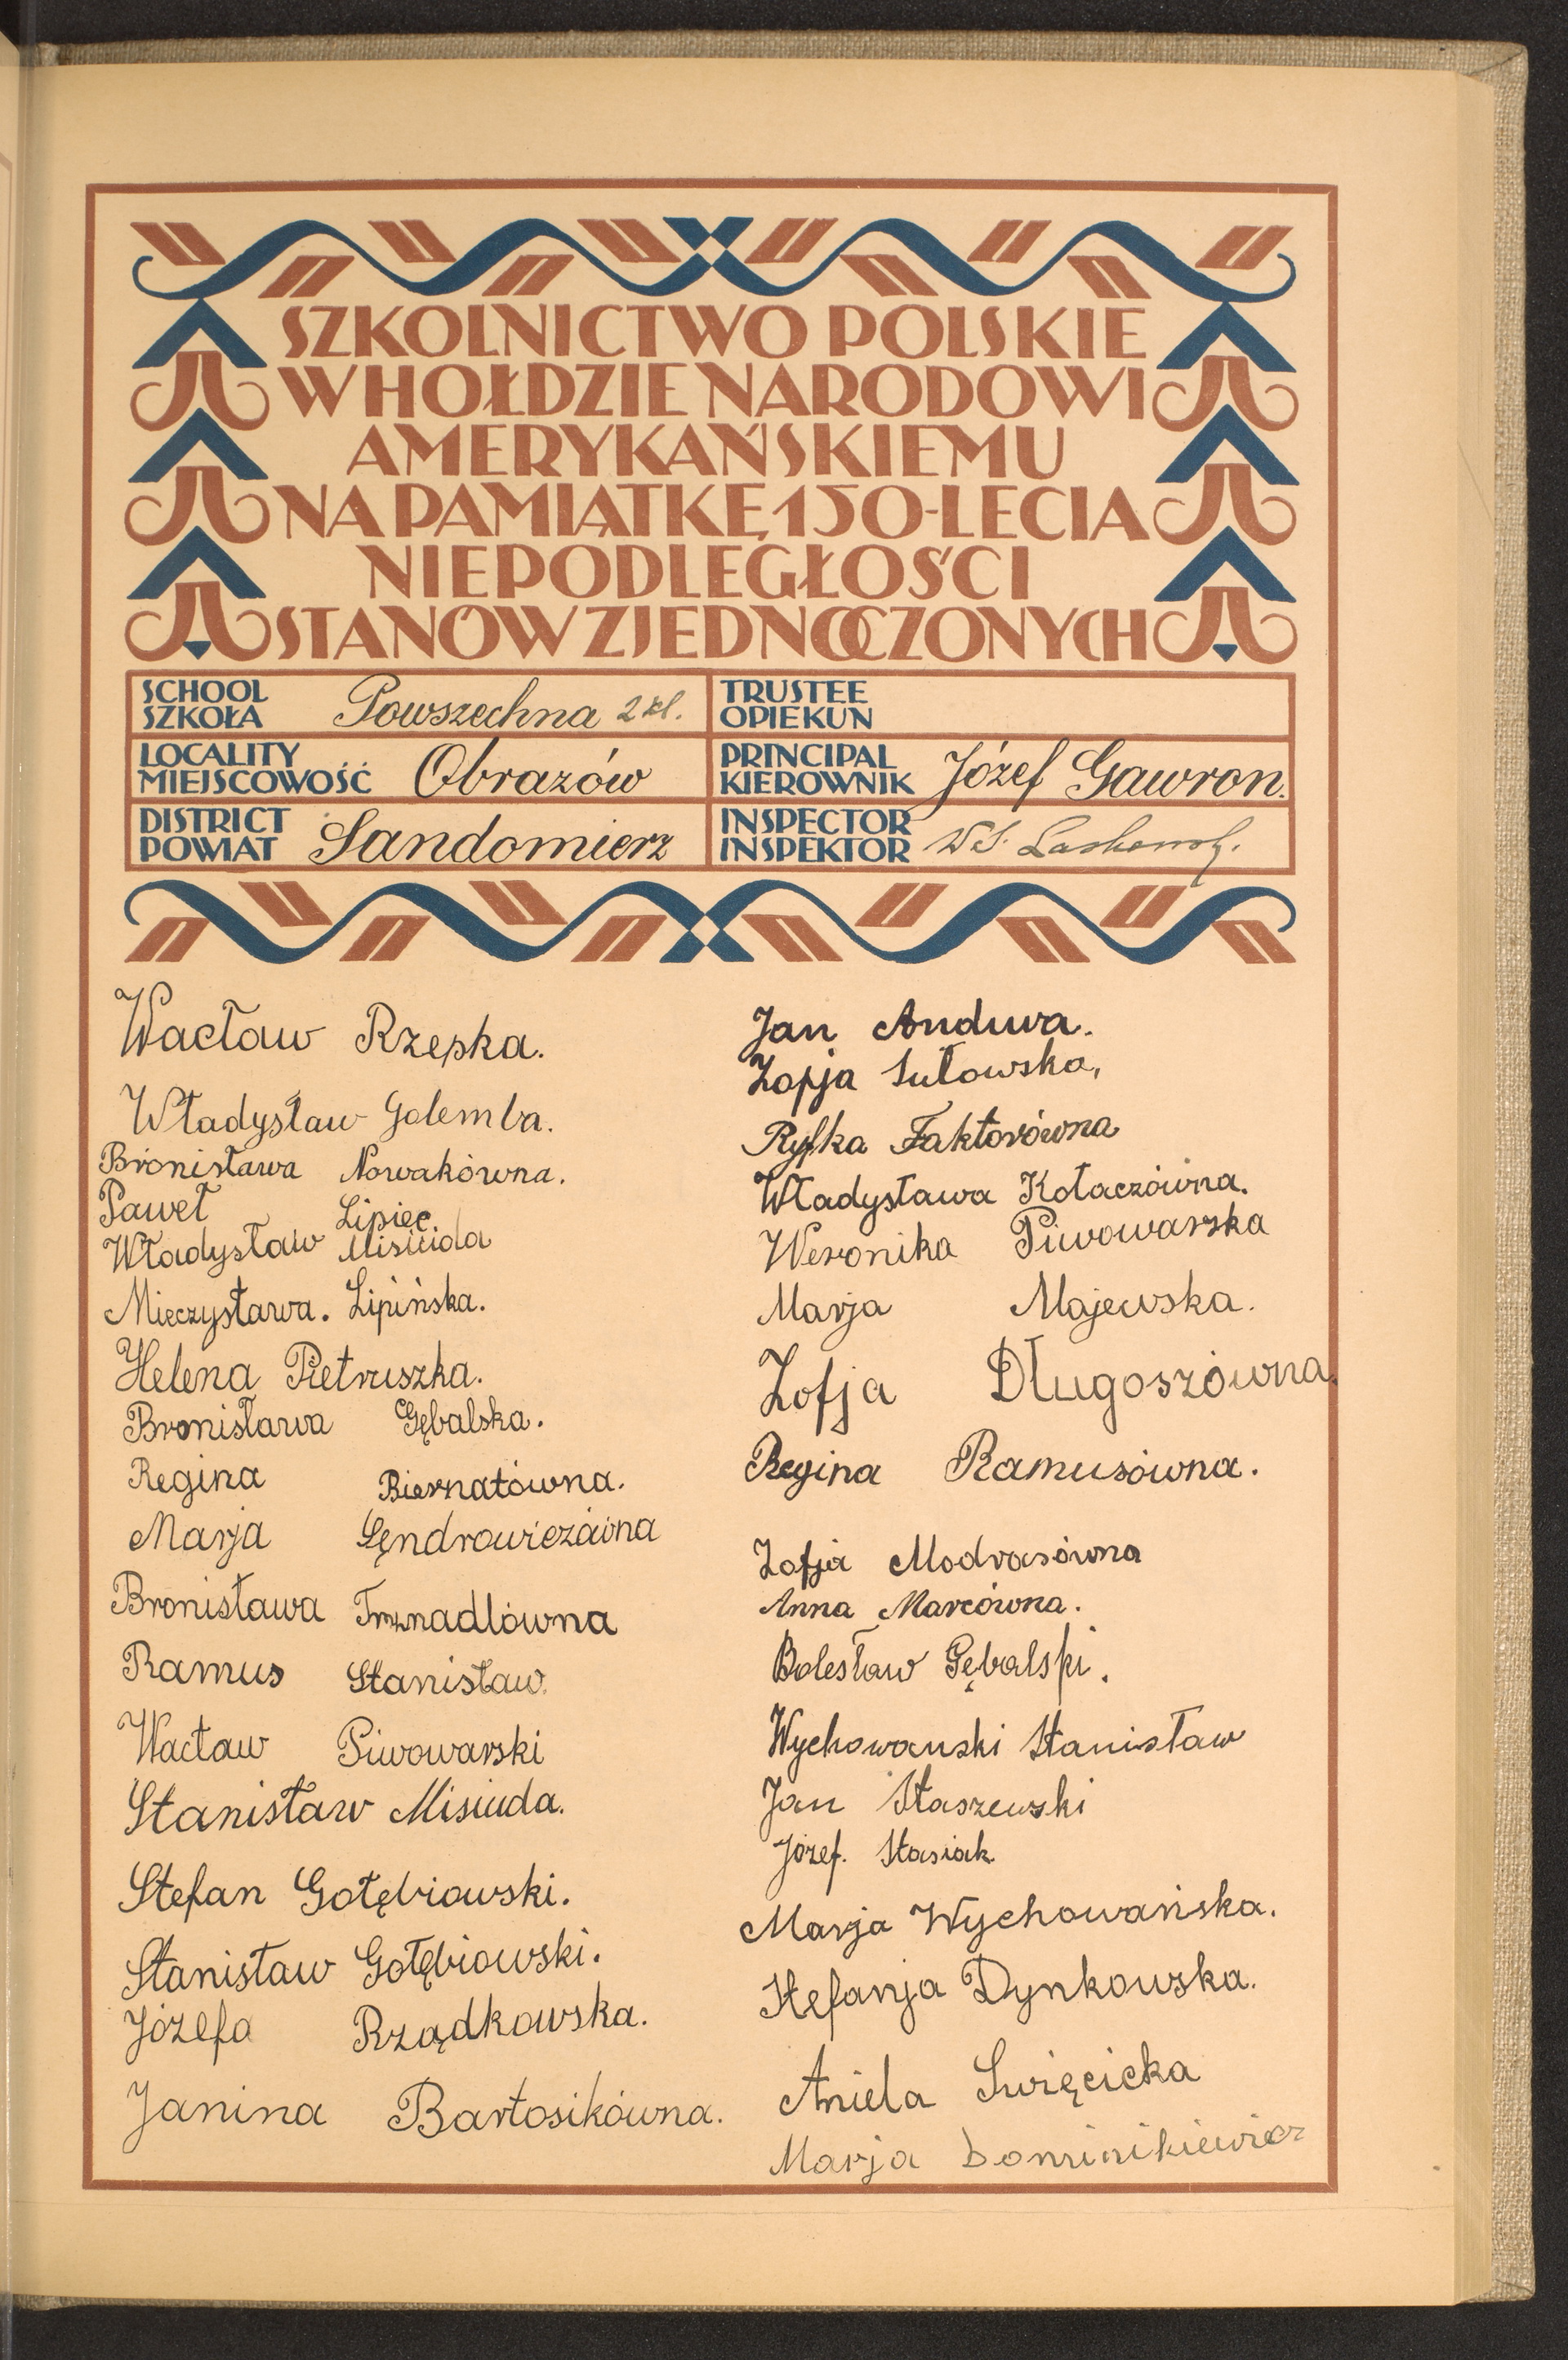 SZKOLNICTWO POLSKIE
W HOŁDZIE NARODOWI
AMERYKAŃSKIEMU
NA PAMIĄTKĘ 150-LECIA
NIEPODLEGŁOŚCI
STANÓW ZJEDNOCZONYCH
SCHOOL
SZKOŁA Powszechna 2 kl.
TRUSTEE
OPIEKUN
LOCALITY
MIEJSCOWOŚĆ Obrazów
PRINCIPAL
KIEROWNIK Józef Gawron.
DISTRICT
POWIAT Sandomierz
INSPECTOR
INSPEKTOR
Wacław Rzepka.
Władysław Golemba.
Bronisława Nowakówna.
Paweł Lipiec.
Władysław Misiuda
Mieczysława. Lipińska.
Helena Pietruszka.
Bronisława Gębalska.
Regina Biernatówna.
Marja Sędrowiczówna
Bronisława Trznadlówna
Ramus Stanisław.
Wacław Piwowarski
Stanisław Misiuda.
Stefan Gołębiowski.
Stanisław Gołębiowski.
Józefa Rządkowska.
Janina Bartosikówna.
Jan Anduwa.
Zofja Sułowska,
Ryfka Faktorówna
Władysława Kołaczówna.
Weronika Piwowarska
Marja Majewska.
Zofja Długoszówna.
Regina Ramusówna.
Zofja Modrasówna
Anna Marcówna.
Bolesław Gębalski.
Wychowanski Stanisław
Jan Staszewski
Józef. Stasiak
Marja Wychowańska.
Stefanja Dynkowska.
Aniela Swięcicka
Marja Dominikiewicz